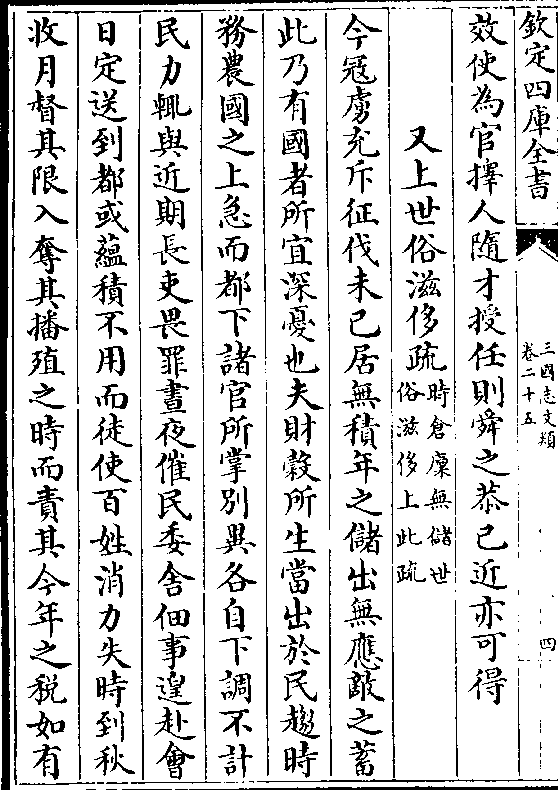 欽定四庫全書
三國志文類
卷二十五
四
效使為官擇人隨才授任則舜之恭已近亦可得
又上世俗滋侈疏時倉廩無儲世
俗滋侈上此疏
今冦虜充斥征伐未已居無積年之儲出無應敵之蓄
此乃有國者所宜深憂也夫財穀所生當出於民趨時
務農國之上急而都下諸官所掌別異各自下調不計
民力輒與近期長吏畏罪晝夜催民委舍佃事遑赴會
日定送到都或蘊積不用而徒使百姓消力失時到秋
收月督其限入奪其播殖之時而責其今年之税如有